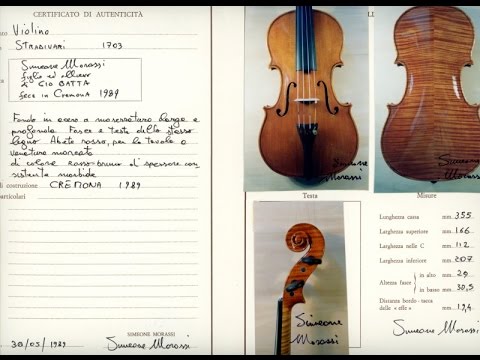 CERTIFICATO DI AUTENTICITÀ
Violino
STRADIVARI 1703
Simeone Morassi
figlo ed allievo
di GIO BATTA
fece in Cremona 1989
Fondo in acero a marezzatura larga e
profonda. Fasce e Testa dello stesso
legno. Abete rosso, per la tavola a
venatura marcata
di colore rosso-bruno d' spessore con
sistente morbida
di costruzione CREMONA 1989
particolari
SIMEONE MORASSI
30/05/1989 Simeone Morassi
Simeone
Morassi
Simeone
Morassi
Testa
Simeone
Morassi
Misure
Lunghezza cassa mm. 355
Larghezza superiore mm. 166
Larghezza nelle C mm. 112
Larghezza inferiore mm. 207
Altezza fasce in alto mm. 29
in basso mm. 30,5
Distanza bordo - tacca
delle « effe » mm. 194
Simeone Morassi